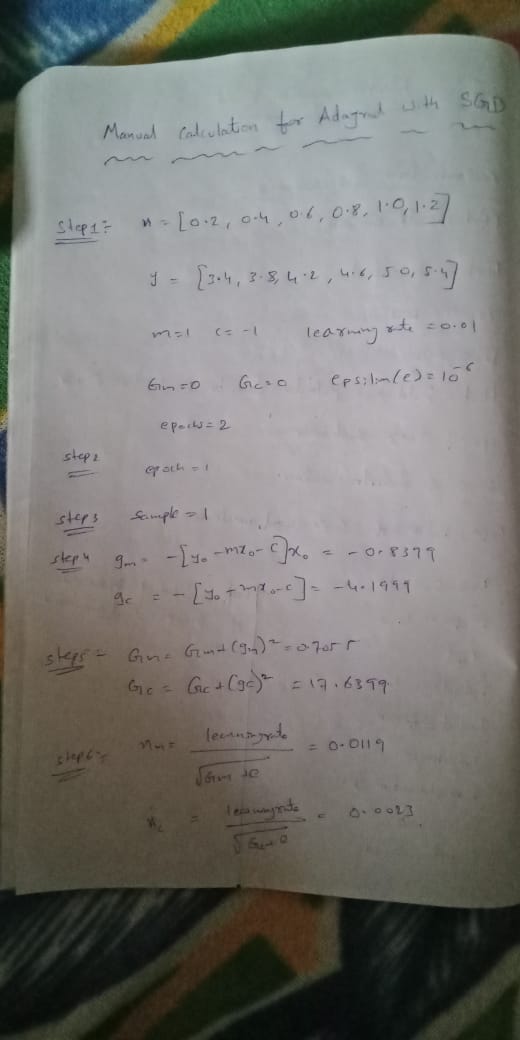 Manual Calculation for Adagrad with SGD
Step1:- x = [0.2, 0.4, 0.6, 0.8, 1.0, 1.2]
y = [3.4, 3.8, 4.2, 4.6, 5.0, 5.4]
m=1 c=-1 learning rate =0.01
Gm=0 Gc=0 epsilon(e)=10^-6
epochs=2
step2 epoch=1
step3 Sample=1
step4 gm= -[y0-mx0-c]x0 = -0.8399
gc = -[y0-mx0-c] = -4.1999
step5= Gm= Gm+(gm)² =0.7055
Gc = Gc+(gc)² =17.6399
step6:- ηm= learningrate / √Gm+e = 0.0119
ηc = learningrate / √Gc+e = 0.0023